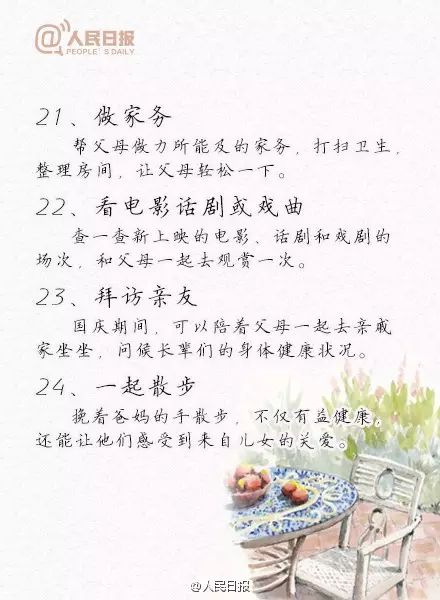 @人民日报
PEOPLE'S DAILY
21、做家务
帮父母做力所能及的家务，打扫卫生，
整理房间，让父母轻松一下。
22、看电影话剧或戏曲
查一查新上映的电影、话剧和戏剧的
场次，和父母一起去观赏一次。
23、拜访亲友
国庆期间，可以陪着父母一起去亲戚
家坐坐，问候长辈们的身体健康状况。
24、一起散步
挽着爸妈的手散步，不仅有益健康，
还能让他们感受到来自儿女的关爱。
@人民日报